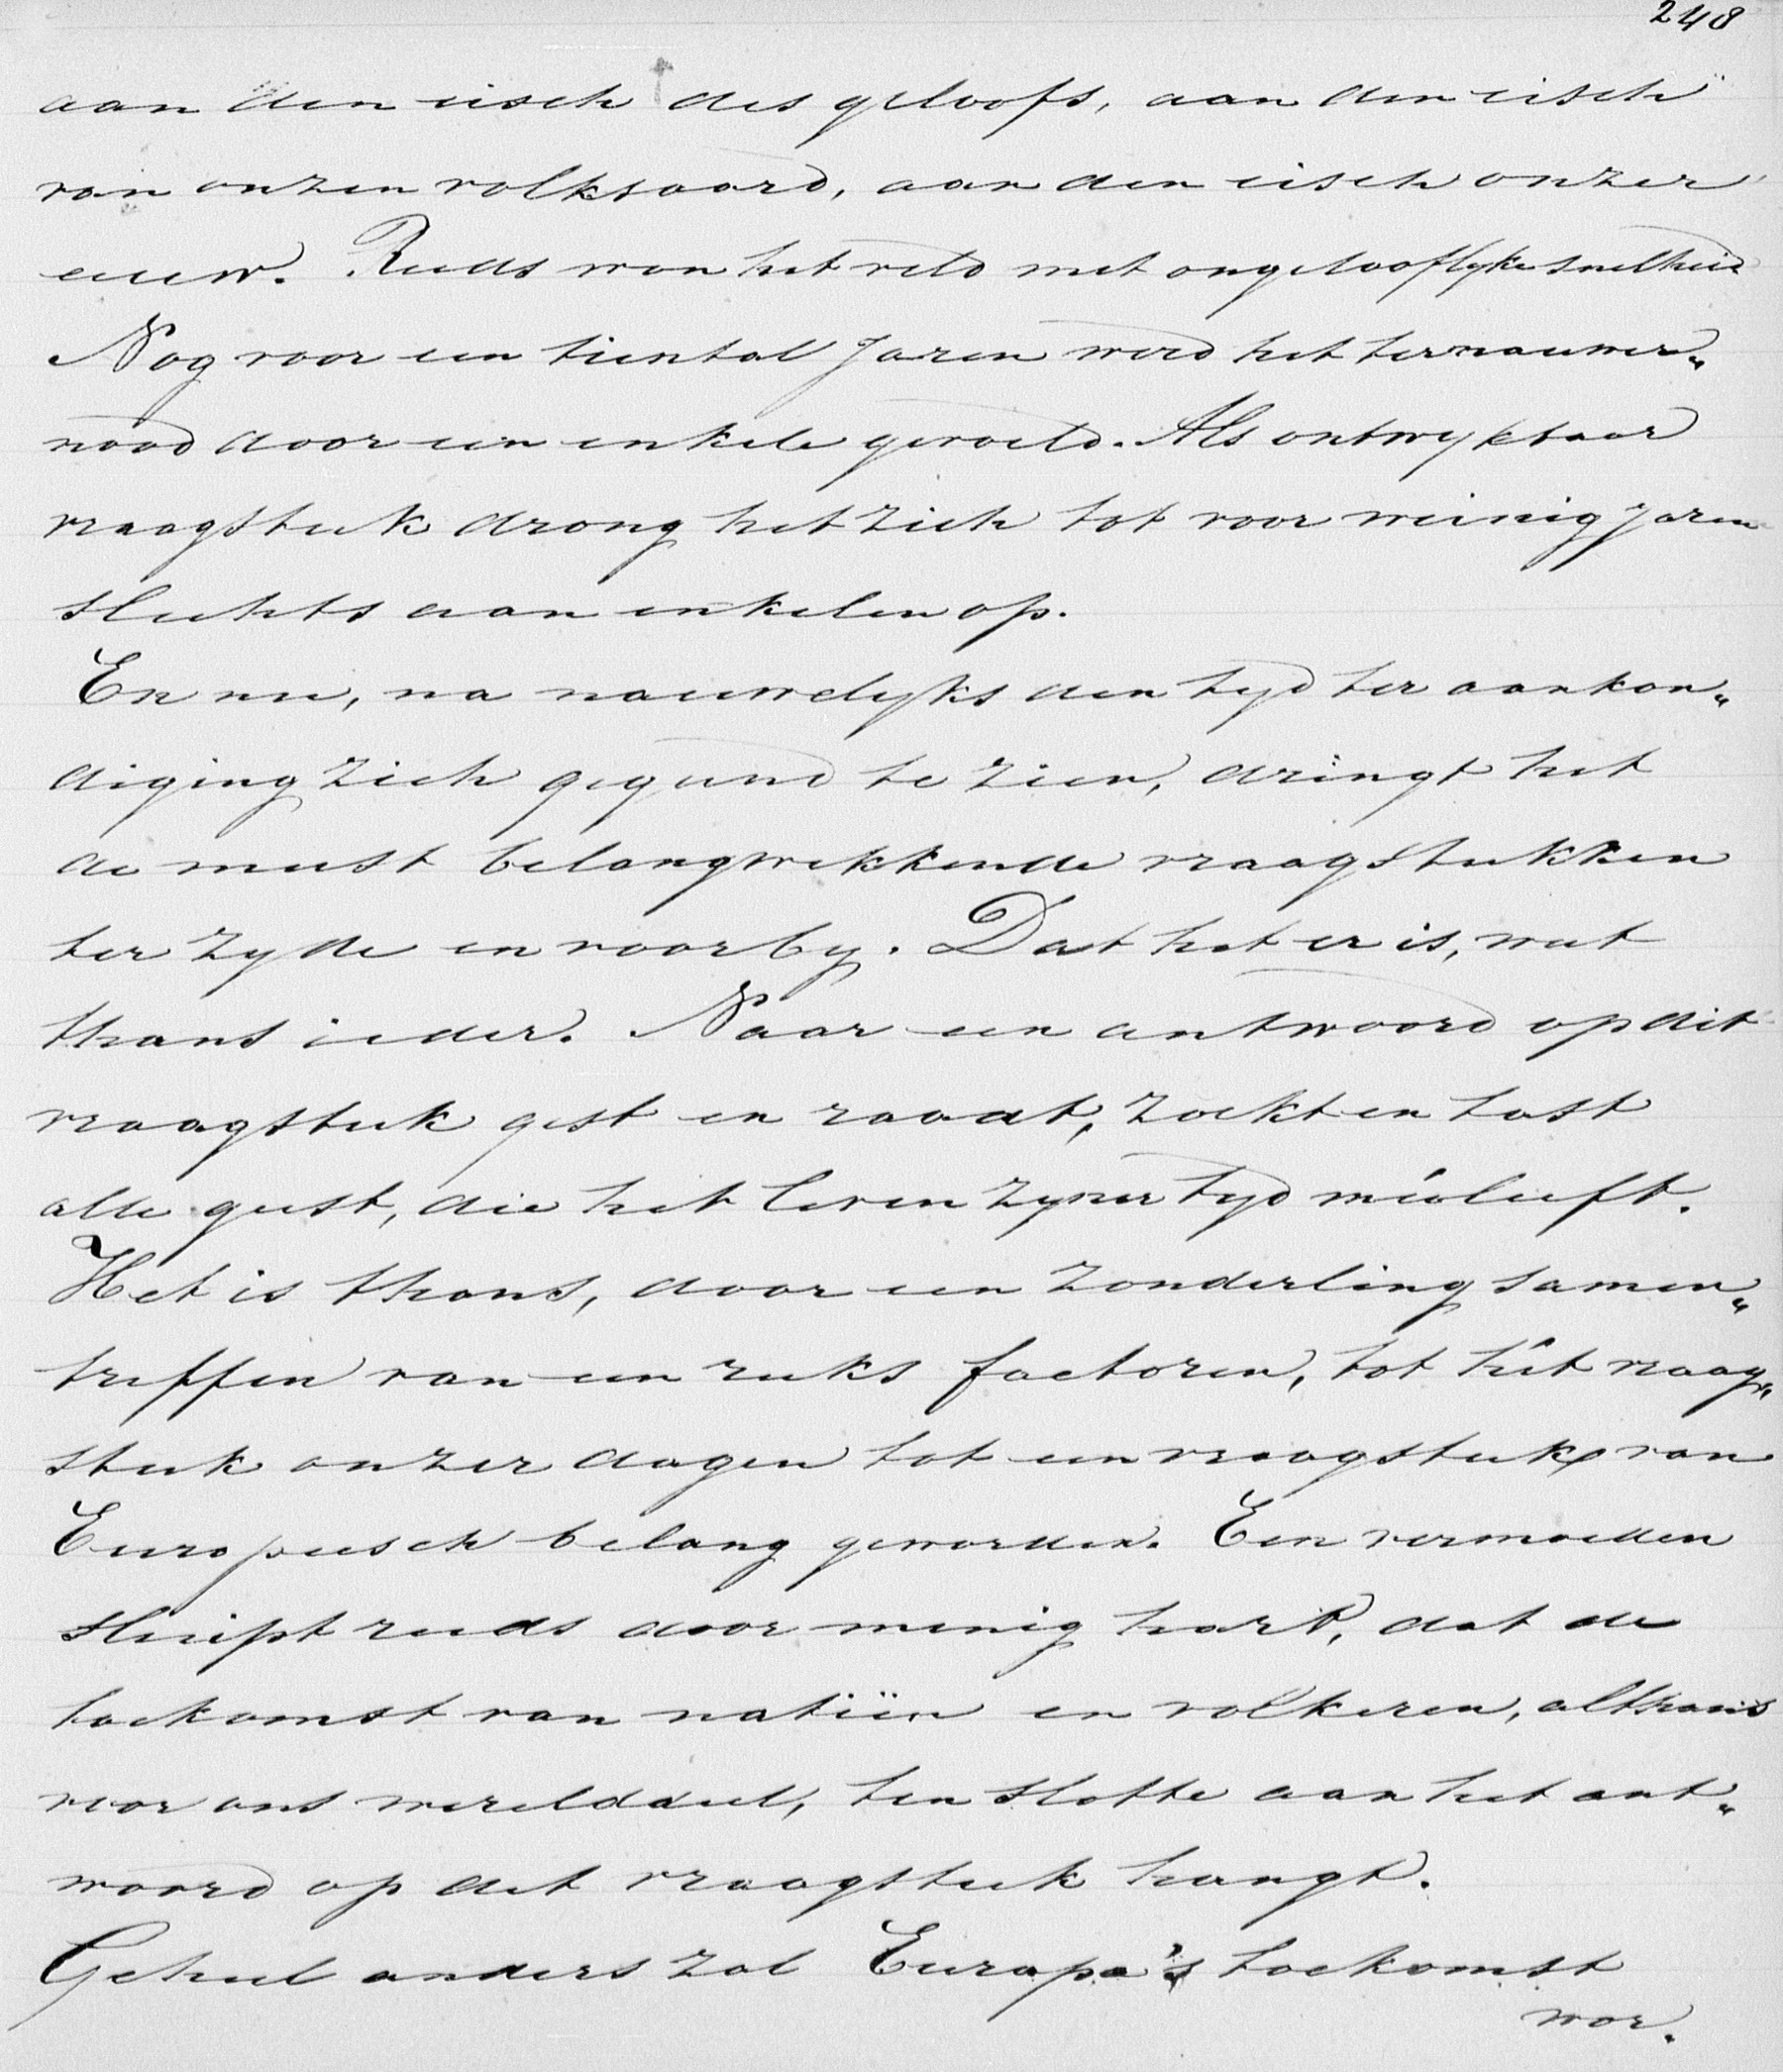 248
aan den eisch des geloofs, aan den eisch
van onzen volksaard, aan den eisch onzer
eeuw. Reeds won het veld met ongelooflyke snelheid
Nog voor een tiental jaren werd het ternauwer„
nood door een enkele gevoeld. Als ontwykbaar
vraagstuk drong het zich tot voor weinig jaren
slechts aan enkelen op.
En nu, na nauwelyks den tyd ter aankon„
diging zich gegund te zien, dringt het
de meest belangwekkende vraagstukken
ter zyde en voorby. Dat het er is, weet
thans ieder. Naar een antwoord op dit
vraagstuk gist en raadt, zoekt en tast
alle geest, die het leven zyner tyd meêleeft.
Het is thans, door een zonderling samen„
treffen van een reeks factoren, tot hét vraag„
stuk onzer dagen tot een vraagstuk van
Europeesch belang geworden. Een vermoeden
sluipt reeds door menig hart, dat de
toekomst van natiën en volkeren, althans
voor ons werelddeel, ten slotte aan het ant„
woord op dit vraagstuk hangt.
Geheel anders zal Europa's toekomst
wor.